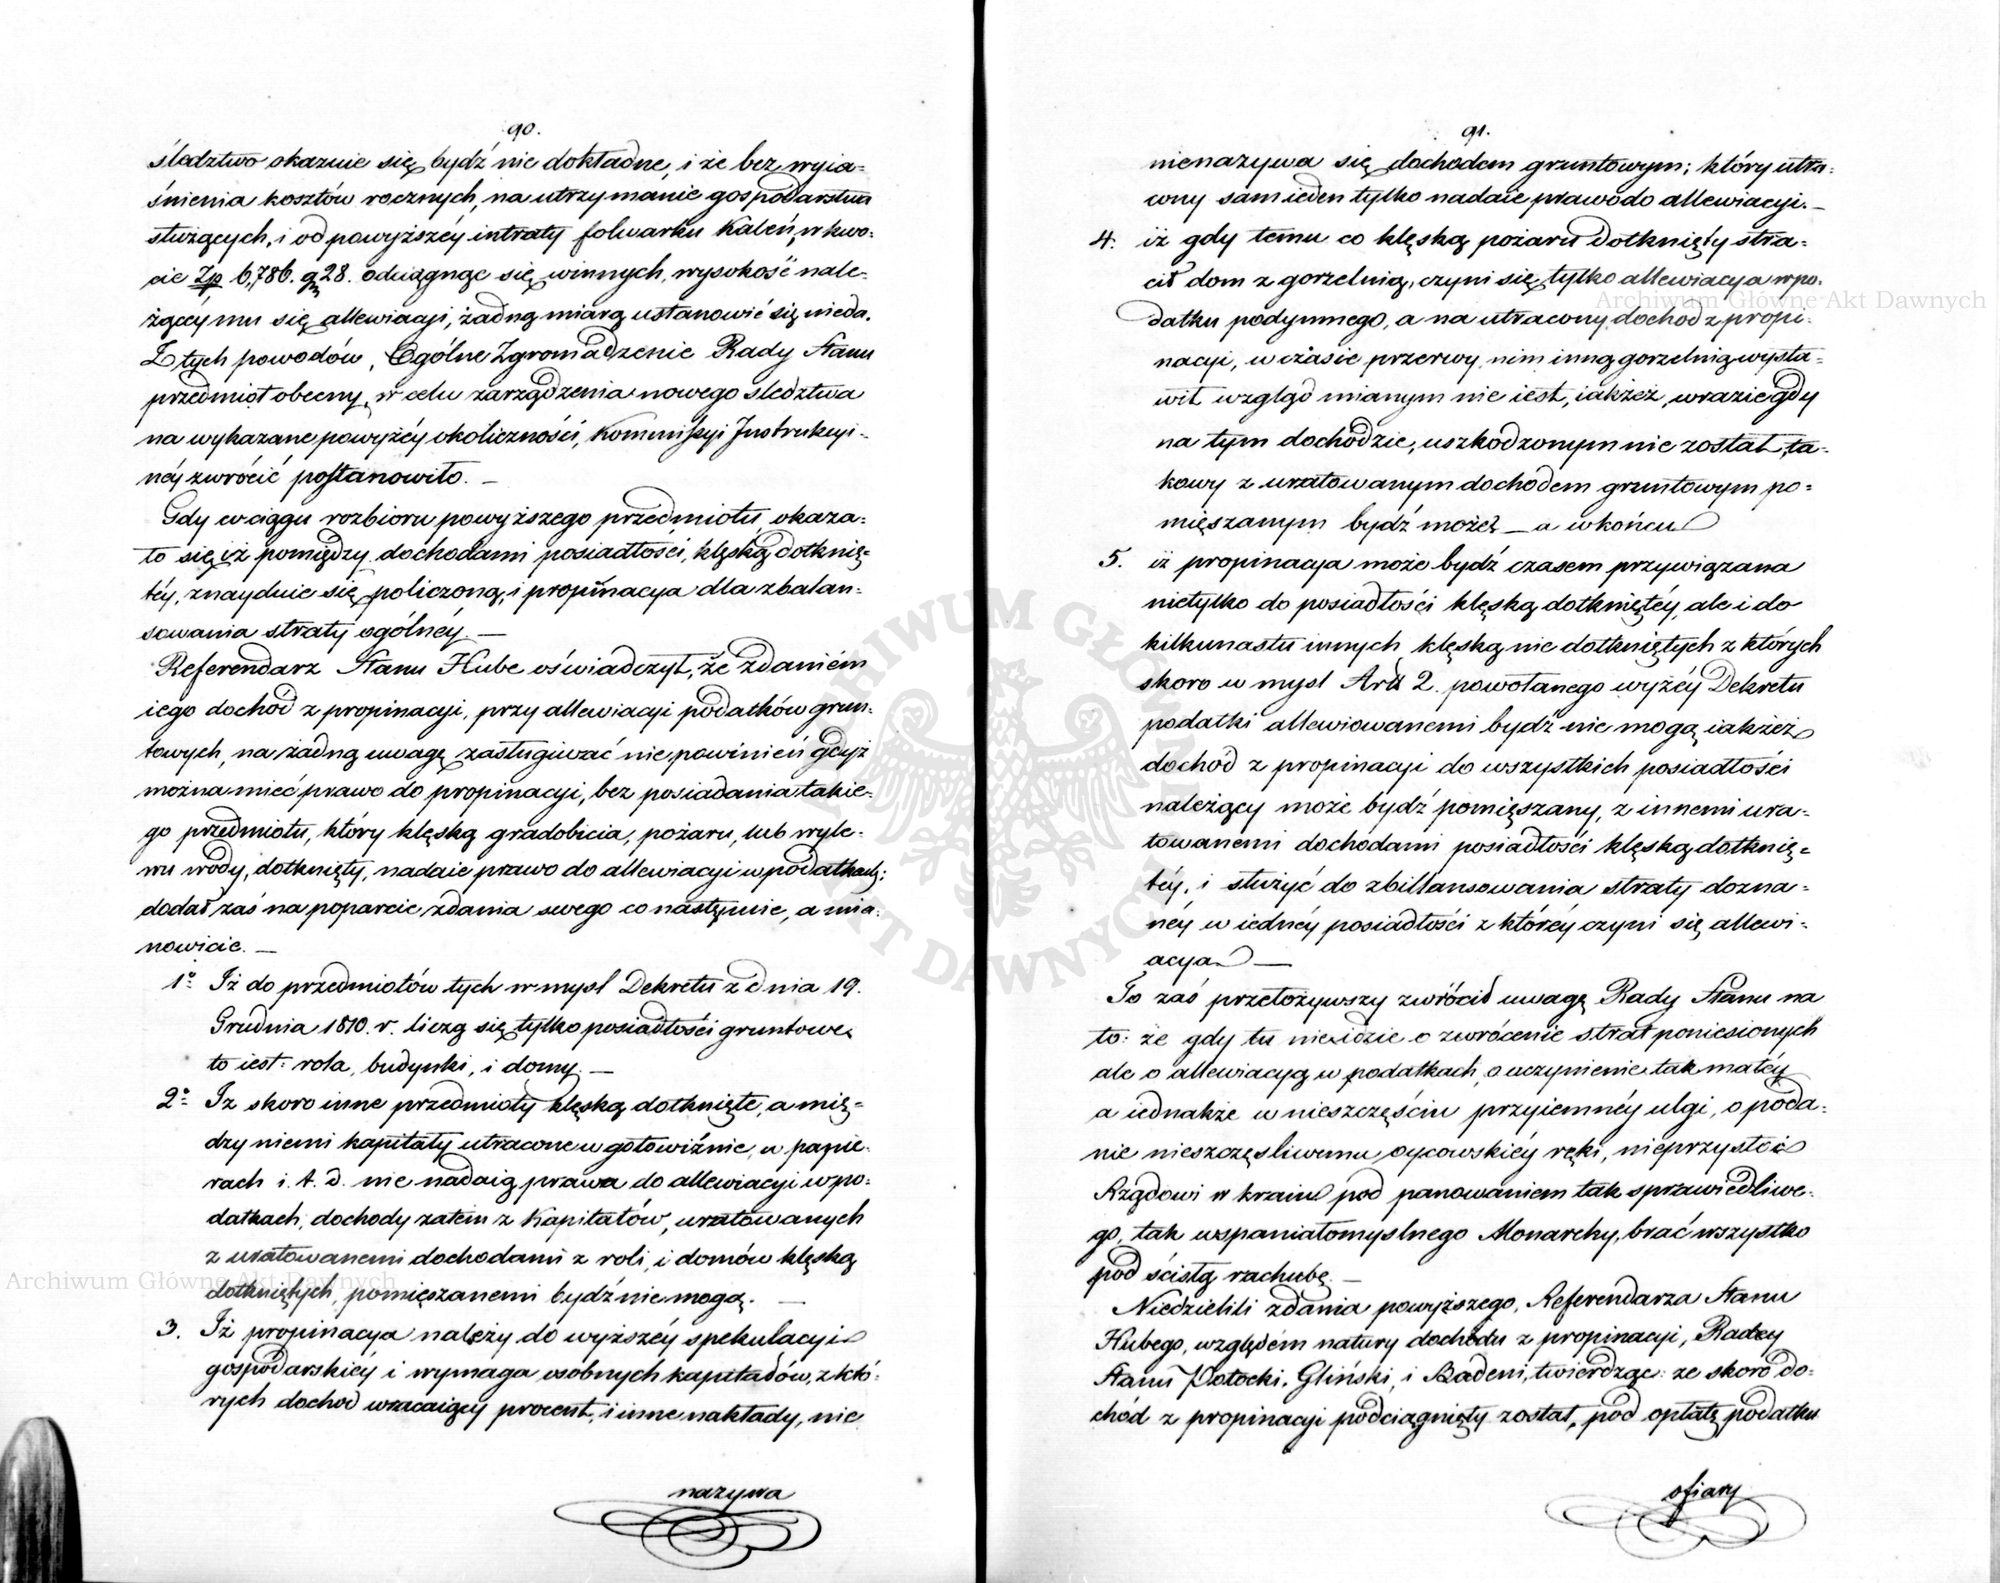 90.
śledztwo okazuie się bydź nie dokładne, i że bez wyia=
śnienia kosztów rocznych, na utrzymanie gospodarstwa
służących, i od powyższéy intraty folwarku Kaleń, w kwo=
cie Zp 6,786. gr 28. odciągnąc się winnych, wysokość nale=
żącéy mu się allewiacji, żadną miarą ustanowić się nieda.
Z tych powodów, Ogólne Zgromadzenie Rady Stanu
przedmiot obecny, w celu zarządzenia nowego śledztwa
na wykazane powyżéy okoliczności, Kommissyi Instrukcyi=
néy zwrócić postanowiło. —
Gdy w ciągu rozbioru powyższego przedmiotu, okaza=
ło się iż pomiędzy dochodami posiadłości, klęską dotknię=
téy, znayduie się policzoną, i propinacya dla zbalan=
sowania straty ogólnéy. —
Referendarz Stanu Hube oświadczył, że zdaniém
iego dochód z propinacji, przy allewiacji podatków grun=
towych, na żadną uwagę zasługiwać nie powinień gdyż
można mieć prawo do propinacyi, bez posiadania takie=
go przedmiotu, który klęską gradobicia, pożaru, lub wyle=
wu wody, dotknięty, nadaie prawo do allewiacyi w podatkach;
dodał zaś na poparcie zdania swego co następuie, a mia=
nowicie. —
1o Iż do przedmiotów tych w mysl Dekretu z dnia 19.
Grudnia 1810. r. liczą się tylko posiadłości gruntowe,
to iest: rola, budynki, i domy. —
2o Iż skoro inne przedmioty klęską dotknięte, a mię=
dzy niemi kapitały utracone w gotowiźnie, w papie=
rach i. t. d. nie nadaią prawa do allewiacyi w po=
datkach, dochody zatem z Kapitałów, uratowanych
z uratowanemi dochodami z roli, i domów klęską
dotkniętych, pomięszanemi bydź nie mogą. —
3. Iż propinacya należy do wyższéy spekulacyi
gospodarskiéy i wymaga osobnych kapitałów, z któ=
rych dochod wracaiący procent, i inne nakłady, nie
nazywa
91.
nienazywa się dochodem gruntowym; który utra=
cony sam ieden tylko nadaie prawo do allewiacyi. —
4. iż gdy temu co klęską pożaru dotknięty stra=
cił dom z gorzelnią, czyni się tylko allewiacya w po=
datku podymnego, a na utracony dochod z propi=
nacyi, w czasie przerwy nim inną gorzelnią wysta=
wił wzgląd mianym nie iest, iakżeż, w razie gdy
na tym dochodzie, uszkodzonym nie został, ta=
kowy z uratowanym dochodem gruntowym po=
mięszanym bydź może? — a w końcu
5. iż propinacya może bydź czasem przywiązana
nietylko do posiadłości klęską dotkniętéy, ale i do
kilkunastu innych, klęską nie dotkniętych z których
skoro w mysl Artt 2. powołanego wyżéy Dekretu
podatki allewiowanemi bydź nie mogą, iakżeż
dochód z propinacji do wszystkich posiadłości
należący może bydź pomięszany, z innemi ura=
towanemi dochodami posiadłości klęską dotknię=
téy, i służyć do zbillansowania straty dozna=
néy w iednéy posiadłości z któréy czyni się allewi=
acya. —
To zaś przełożywszy zwrócił uwagę Rady Stanu na
to: że gdy tu nieidzie o zwrócenie strat poniesionych
ale o allewiacyą w podatkach, o uczynienie tak małéy
a iednakże w nieszczęściu przyiemnéy ulgi, o poda=
nie nieszczęsliwemu oycowskiéy ręki, nieprzystoi
Rządowi w kraiu pod panowaniem tak sprawiedliwe=
go, tak wspaniałomyslnego Monarchy, brać wszystko
pod ścisłą rachubę. —
Niedzielili zdania powyższego, Referendarza Stanu
Hubego, względém natury dochodu z propinacji, Radcy
Stanu Potocki, Gliński, i Badeni, twierdząc: że skoro do=
chód z propinacji podciągnięty został, pod opłatę podatku
ofiary
Archiwum Główne Akt Dawnych
Archiwum Główne Akt Dawnych
ARCHIWUM GŁÓWNE AKT DAWNYCH